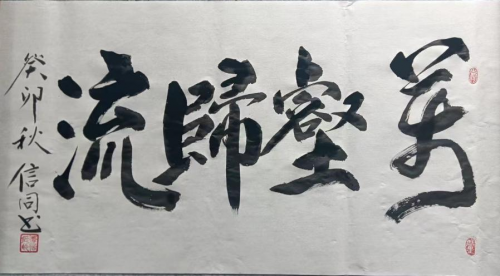 萬壑歸流
癸卯秋 信同书